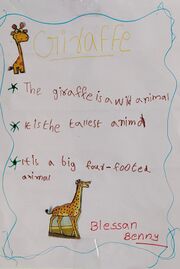 Giraffe
The giraffe is a wild animal
It is the tallest animal
It is a big four-footed
animal
Blessan
Benny